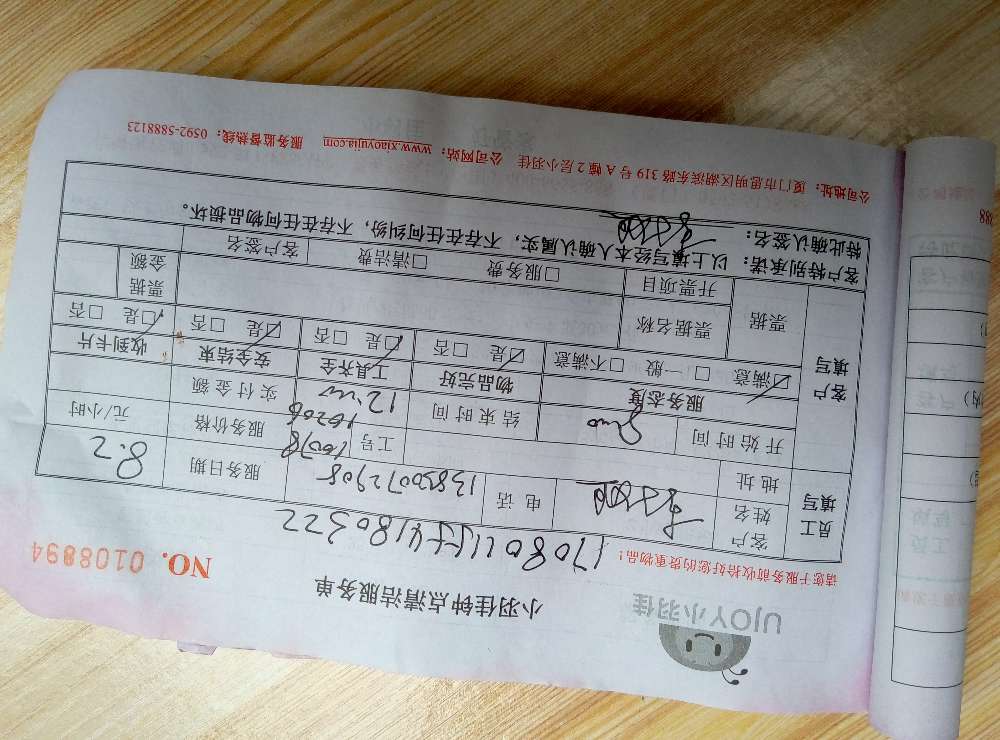 UJOY小羽佳
小羽佳钟点清洁服务单
NO. 0108894
请您于服务前收拾好您的贵重物品！
员工填写
客户姓名
电 话
服务日期
8.2
地 址
工号
10206
服务价格
元/小时
客户填写
开 始 时 间
结 束 时 间
12:00
实 付 金 额
服务态度
物品完好
工具齐全
安全结束
收到卡片
☑满意 □ 一般 □不满意
☑是 □否
☑是 □否
☑是 □否
☑是 □否
票据
票据名称
票据金额
开票项目
□服务费 □清洁费
客户签名
客户特别承诺： 以上填写经本人确认属实，不存在任何纠纷，不存在任何物品损坏。
特此确认签名：
公司地址：厦门市思明区湖滨东路 319 号 A 幢 2 层小羽佳 公司网站：www.xiaoyujia.com 服务监督热线：0592-5888123